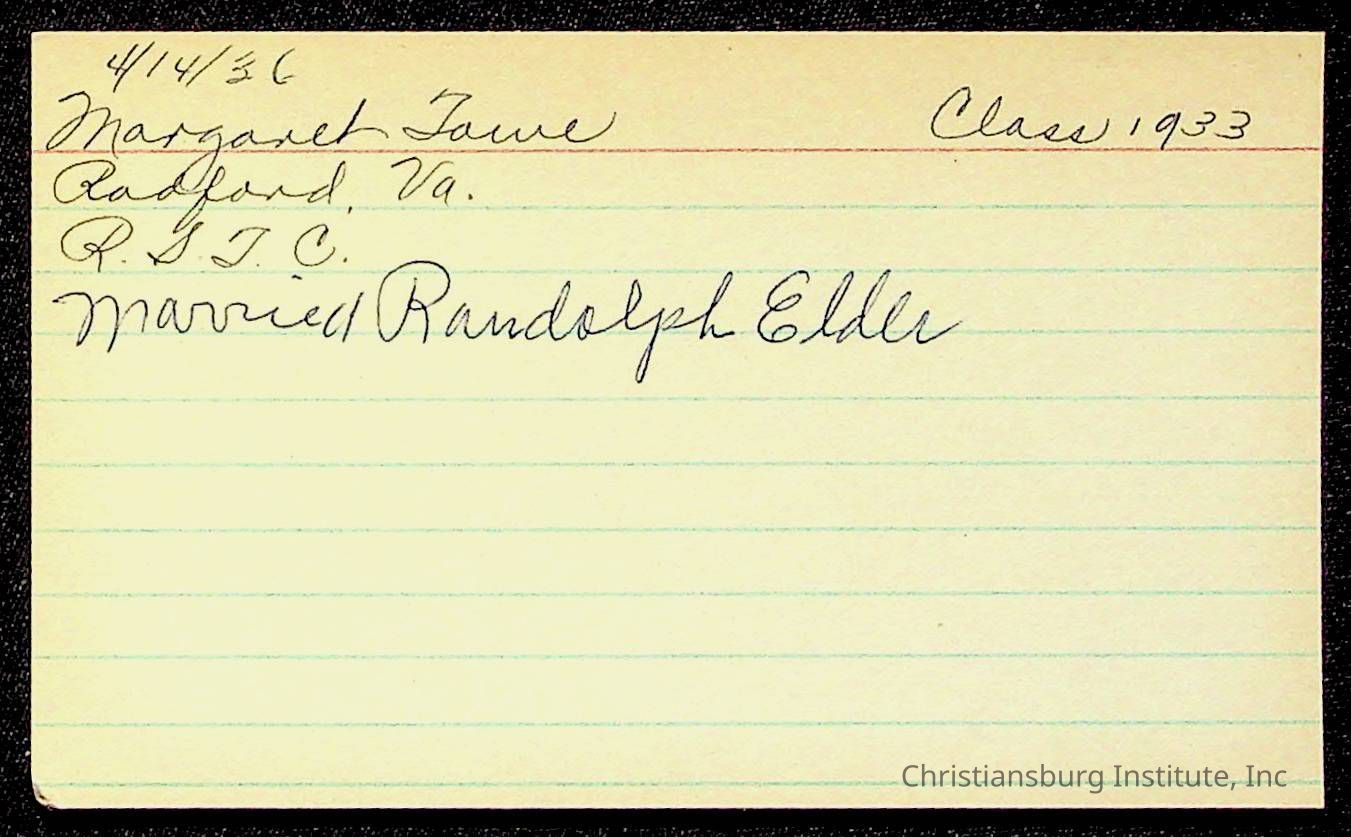 4/14/36
Margaret Towe Class 1933
Radford, Va.
R. S. T. C.
Married Randolph Elder
Christiansburg Institute, Inc